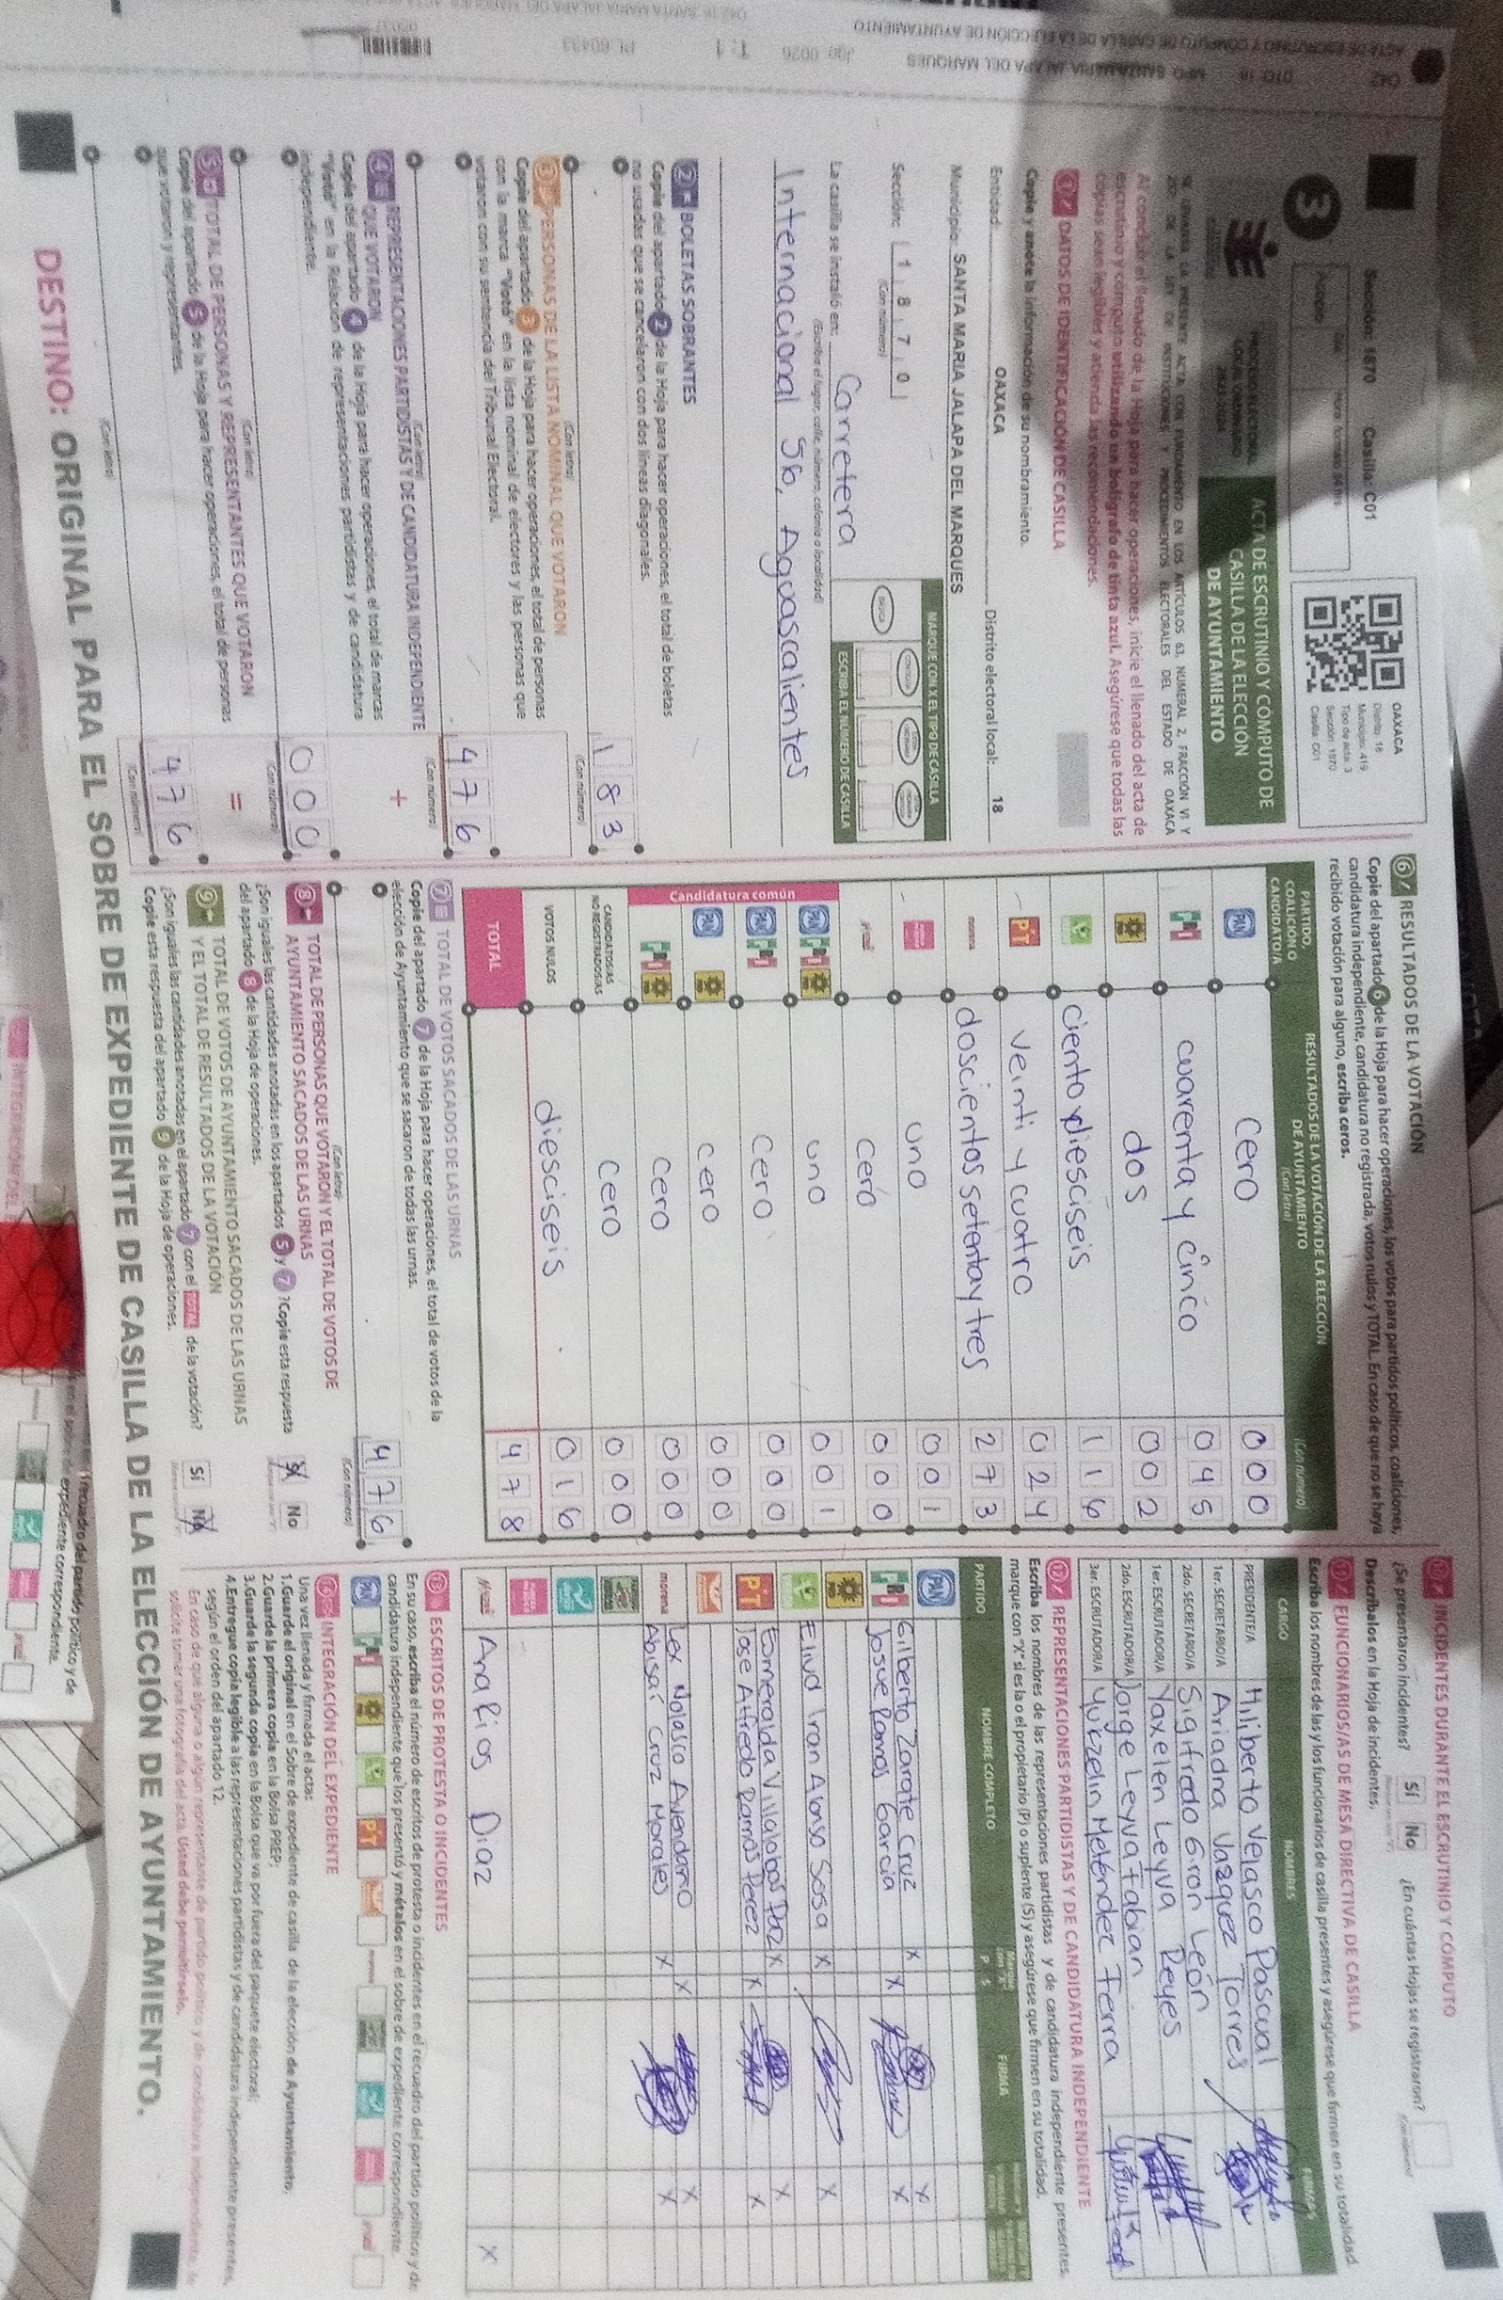 Sección: 1870 Casilla: C01
3
PROCESO ELECTORAL
LOCAL ORDINARIO
2023-2024
ACTA DE ESCRUTINIO Y CÓMPUTO DE
CASILLA DE LA ELECCIÓN
DE AYUNTAMIENTO
OAXACA
Distrito: 18
Municipio: 419
Tipo de acta: 3
Sección: 1870
Casilla: C01
Al concluir el llenado de la Hoja para hacer operaciones, inicie el llenado del acta de
escrutinio y cómputo utilizando un bolígrafo de tinta azul. Asegúrese que todas las
copias sean legibles y atienda las recomendaciones.
1 DATOS DE IDENTIFICACIÓN DE CASILLA
Copie y anote la información de su nombramiento.
Entidad: OAXACA Distrito electoral local: 18
Municipio: SANTA MARIA JALAPA DEL MARQUES
Sección: 1 8 7 0
(Con número)
MARQUE CON X EL TIPO DE CASILLA
ESCRIBA EL NÚMERO DE CASILLA
La casilla se instaló en: Carretera
(Escriba el lugar, calle, número, colonia o localidad)
Internacional 56, Aguascalientes
2 BOLETAS SOBRANTES
Copie del apartado 2 de la Hoja para hacer operaciones, el total de boletas
no usadas que se cancelaron con dos líneas diagonales.
183
(Con letra) (Con número)
3 PERSONAS DE LA LISTA NOMINAL QUE VOTARON
Copie del apartado 3 de la Hoja para hacer operaciones, el total de personas
con la marca "Votó" en la lista nominal de electores y las personas que
votaron con su sentencia del Tribunal Electoral.
476
(Con letra) (Con número)
4 REPRESENTACIONES PARTIDISTAS Y DE CANDIDATURA INDEPENDIENTE
QUE VOTARON
Copie del apartado 4 de la Hoja para hacer operaciones, el total de marcas
"Votó" en la Relación de representaciones partidistas y de candidatura
independiente.
+
000
(Con letra) (Con número)
5 TOTAL DE PERSONAS Y REPRESENTANTES QUE VOTARON
Copie del apartado 5 de la Hoja para hacer operaciones, el total de personas
que votaron y representantes.
=
476
(Con letra) (Con número)
6 RESULTADOS DE LA VOTACIÓN
Copie del apartado 6 de la Hoja para hacer operaciones, los votos para partidos políticos, coaliciones,
candidatura independiente, candidatura no registrada, votos nulos y TOTAL. En caso de que no se haya
recibido votación para alguno, escriba ceros.
PARTIDO, COALICIÓN O CANDIDATO/A
RESULTADOS DE LA VOTACIÓN DE LA ELECCIÓN DE AYUNTAMIENTO
(Con letra) (Con número)
PAN cero 000
PRI cuarenta y cinco 045
dos 002
ciento diesciseis 116
PT veinti y cuatro 024
morena doscientos setenta y tres 273
uno 001
cero 000
Candidatura común
PAN PRI uno 001
PAN PRI cero 000
PAN cero 000
PRI cero 000
CANDIDATOS/AS NO REGISTRADOS/AS cero 000
VOTOS NULOS diesciseis 016
TOTAL 478
7 TOTAL DE VOTOS SACADOS DE LAS URNAS
Copie del apartado 7 de la Hoja para hacer operaciones, el total de votos de la
elección de Ayuntamiento que se sacaron de todas las urnas.
476
(Con letra) (Con número)
8 TOTAL DE PERSONAS QUE VOTARON Y EL TOTAL DE VOTOS DE
AYUNTAMIENTO SACADOS DE LAS URNAS
¿Son iguales las cantidades anotadas en los apartados 5 y 7? Copie esta respuesta
del apartado 8 de la Hoja de operaciones.
Sí No
9 TOTAL DE VOTOS DE AYUNTAMIENTO SACADOS DE LAS URNAS
Y EL TOTAL DE RESULTADOS DE LA VOTACIÓN
¿Son iguales las cantidades anotadas en el apartado 7 con el TOTAL de la votación?
Copie esta respuesta del apartado 9 de la Hoja de operaciones.
Sí No
INCIDENTES DURANTE EL ESCRUTINIO Y CÓMPUTO
¿Se presentaron incidentes? Sí No ¿En cuántas Hojas se registraron?
Descríbalos en la Hoja de incidentes.
FUNCIONARIOS/AS DE MESA DIRECTIVA DE CASILLA
Escriba los nombres de las y los funcionarios de casilla presentes y asegúrese que firmen en su totalidad.
CARGO NOMBRES FIRMAS
PRESIDENTE/A Hiliberto Velasco Pascual
1er. SECRETARIO/A Ariadna Vazquez Torres
2do. SECRETARIO/A Sigifredo Giron León
1er. ESCRUTADOR/A Yaxelen Leyva Reyes
2do. ESCRUTADOR/A Jorge Leyva Fabian
3er. ESCRUTADOR/A Yurzelin Meléndez Ferra
12 REPRESENTACIONES PARTIDISTAS Y DE CANDIDATURA INDEPENDIENTE
Escriba los nombres de las representaciones partidistas y de candidatura independiente presentes,
marque con "X" si es la o el propietario (P) o suplente (S) y asegúrese que firmen en su totalidad.
PARTIDO NOMBRE COMPLETO P S FIRMA
PAN
PRI Gilberto Zarate Cruz X X
Josue Ramos Garcia X X
Eliud Iran Alonso Sosa X X
PT Esmeralda Villalobos Paz X X
Jose Alfredo Ramos Perez X X
morena Lex Nolasco Avendaño X X
Abisaí Cruz Morales X X
Ana Rios Diaz X
13 ESCRITOS DE PROTESTA O INCIDENTES
En su caso, escriba el número de escritos de protesta o incidentes en el recuadro del partido político y de
candidatura independiente que los presentó y métalos en el sobre de expediente correspondiente.
14 INTEGRACIÓN DEL EXPEDIENTE
Una vez llenada y firmada el acta:
1.Guarde el original en el Sobre de expediente de casilla de la elección de Ayuntamiento;
2.Guarde la primera copia en la Bolsa PREP;
3.Guarde la segunda copia en la Bolsa que va por fuera del paquete electoral;
4.Entregue copia legible a las representaciones partidistas y de candidatura independiente presentes,
según el orden del apartado 12.
DESTINO: ORIGINAL PARA EL SOBRE DE EXPEDIENTE DE CASILLA DE LA ELECCIÓN DE AYUNTAMIENTO.